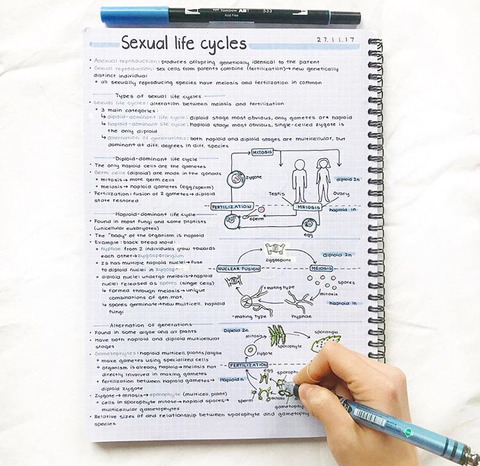 TOMBOW ABT 533
Sexual life cycles
27.11.17
Asexual reproduction: produces offspring genetically identical to the parent
Sexual reproduction: sex cells from parents combine (fertilization) → new genetically
distinct individual
all sexually reproducing species have meiosis and fertilization in common
Types of sexual life cycles
Sexual life cycles: alteration between meiosis and fertilization
3 main categories:
diploid-dominant life cycle: diploid stage most obvious, only gametes are haploid
haploid-dominant life cycle: haploid stage most obvious, single-celled zygote is
the only diploid
alternation of generations: both haploid and diploid stages are multicellular, but
dominant at diff. degrees in diff. species
Diploid-dominant life cycle
The only haploid cells are the gametes
Germ cells (diploid) are made in the gonads
mitosis → more germ cells
meiosis → haploid gametes (egg/sperm)
Fertilization: fusion of 2 gametes → diploid
state restored
MITOSIS
zygote
diploid 2n
Testis
Ovary
FERTILIZATION
MEIOSIS
haploid 1n
sperm
egg
Haploid-dominant life cycle
Found in most fungi and some protists
(unicellular eukaryotes)
The "body" of the organism is haploid
Example: black bread mold:
hyphae from 2 individuals grow towards
each other → zygosporangium
Zs has multiple haploid nuclei → fuse
to diploid nuclei in zygospore
diploid nuclei undergo meiosis → haploid
nuclei released as spores (single cells)
formed through meiosis → unique
combinations of gen. mat.
spores germinate → multicell. haploid
fungi
zygospore
Diploid 2n
NUCLEAR FUSION
MEIOSIS
spores
mitosis
mating type
haploid 1n
mating type
hyphae
Alternation of generations
Found in some algae and all plants
Have both haploid and diploid multicellular
stages
Gametophytes: haploid multicell. plants/algae
make gametes using specialized cells
organism is already haploid → meiosis not
directly involved in making gametes
fertilization between haploid gametes →
diploid zygote
Zygote → mitosis → sporophyte (multicell. plant)
cells in sporophyte → haploid spores →
multicellular gametophytes
Relative sizes of and relationship between sporophyte and
species
Diploid 2n
mitosis
sporophyte
zygote
FERTILIZATION
Haploid 1n
egg